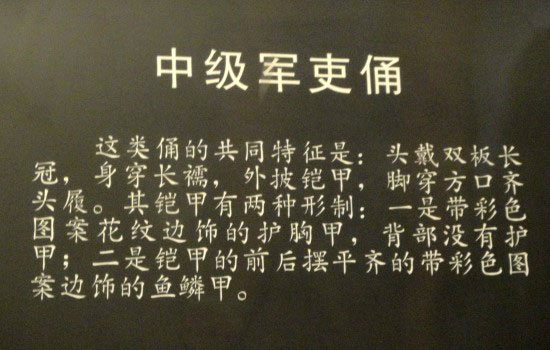 中级军吏俑
这类俑的共同特征是：头戴双板长
冠，身穿长襦，外披铠甲，脚穿方口齐
头履。其铠甲有两种形制：一是带彩色
图案花纹边饰的护胸甲，背部没有护
甲；二是铠甲的前后摆平齐的带彩色图
案边饰的鱼鳞甲。